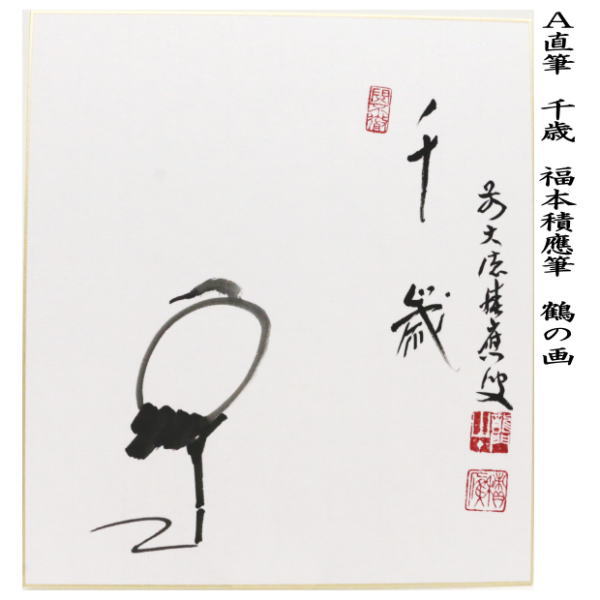 A直筆　千歳　福本積應筆　鶴の画
千歳
前大徳積應叟